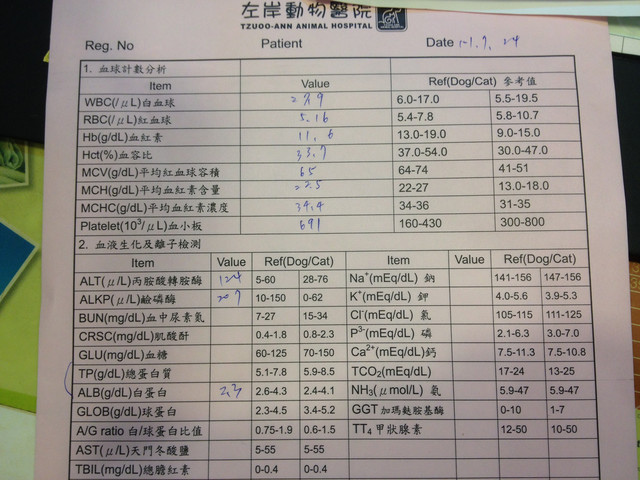 左岸動物醫院
TZUOO-ANN ANIMAL HOSPITAL
Reg. No Patient Date
1. 血球計數分析
Item Value Ref(Dog/Cat) 參考值
WBC(/μL)白血球 6.0-17.0 5.5-19.5
RBC(/μL)紅血球 5.16 5.4-7.8 5.8-10.7
Hb(g/dL)血紅素 11.6 13.0-19.0 9.0-15.0
Hct(%)血容比 33.7 37.0-54.0 30.0-47.0
MCV(g/dL)平均紅血球容積 65 64-74 41-51
MCH(g/dL)平均血紅素含量 22.5 22-27 13.0-18.0
MCHC(g/dL)平均血紅素濃度 34.4 34-36 31-35
Platelet(10³/μL)血小板 691 160-430 300-800
2. 血液生化及離子檢測
Item Value Ref(Dog/Cat) Item Value Ref(Dog/Cat)
ALT(μ/L)丙胺酸轉胺酶 124 5-60 28-76 Na⁺(mEq/dL) 鈉 141-156 147-156
ALKP(μ/L)鹼磷酶 207 10-150 0-62 K⁺(mEq/dL) 鉀 4.0-5.6 3.9-5.3
BUN(mg/dL)血中尿素氮 7-27 15-34 Cl⁻(mEq/dL) 氯 105-115 111-125
CRSC(mg/dL)肌酸酐 0.4-1.8 0.8-2.3 P³⁻(mEq/dL) 磷 2.1-6.3 3.0-7.0
GLU(mg/dL)血糖 60-125 70-150 Ca²⁺(mEq/dL)鈣 7.5-11.3 7.5-10.8
TP(g/dL)總蛋白質 5.1-7.8 5.9-8.5 TCO₂(mEq/dL) 17-24 13-25
ALB(g/dL)白蛋白 2.3 2.6-4.3 2.4-4.1 NH₃(μmol/L) 氨 5.9-47 5.9-47
GLOB(g/dL)球蛋白 2.3-4.5 3.4-5.2 GGT 加瑪麩胺基酶 0-10 1-7
A/G ratio 白/球蛋白比值 0.75-1.9 0.6-1.5 TT₄ 甲狀腺素 12-50 10-50
AST(μ/L)天門冬酸鹽 5-55 5-55
TBIL(mg/dL)總膽紅素 0-0.4 0-0.4